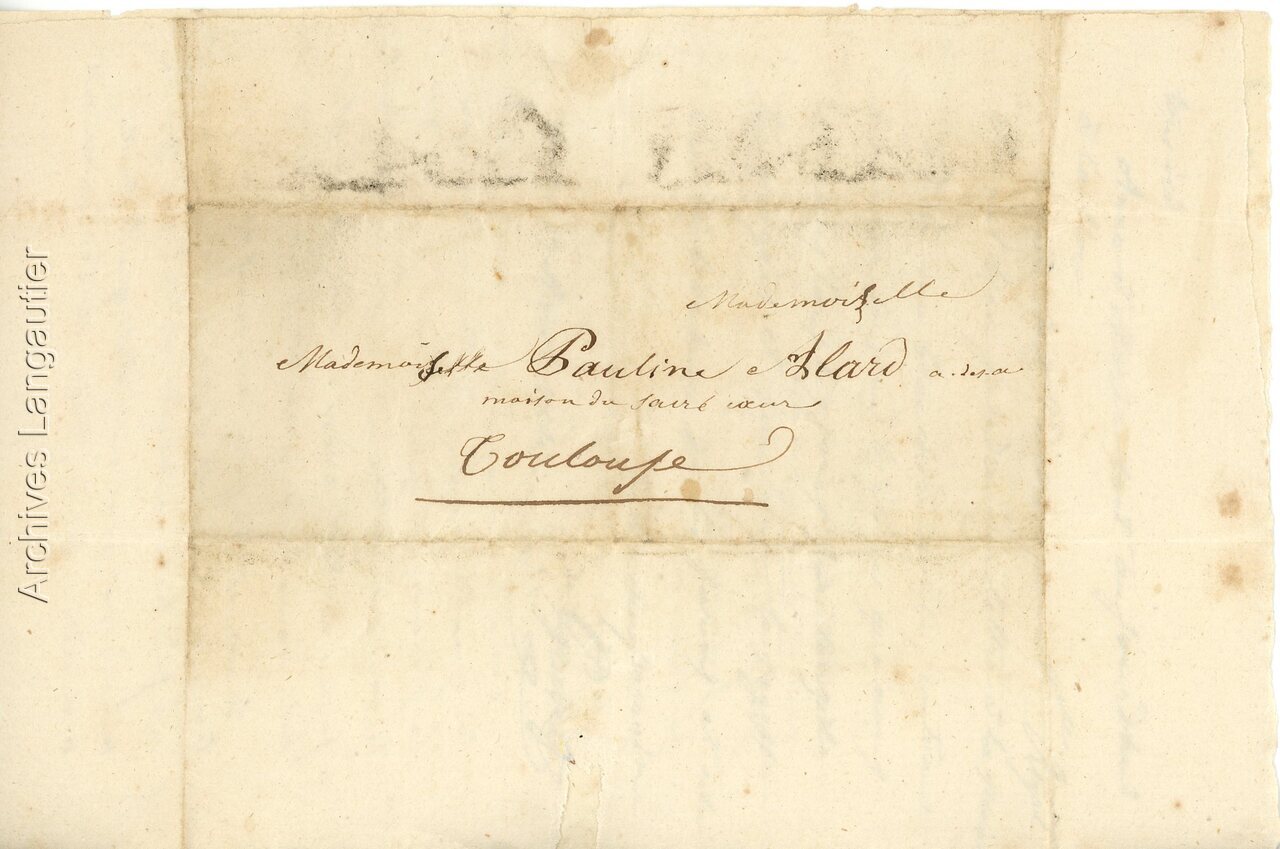 Mademoiselle
Mademoiselle Pauline Alard a
maison du sacré cœur
Toulouse
Archives Langautier